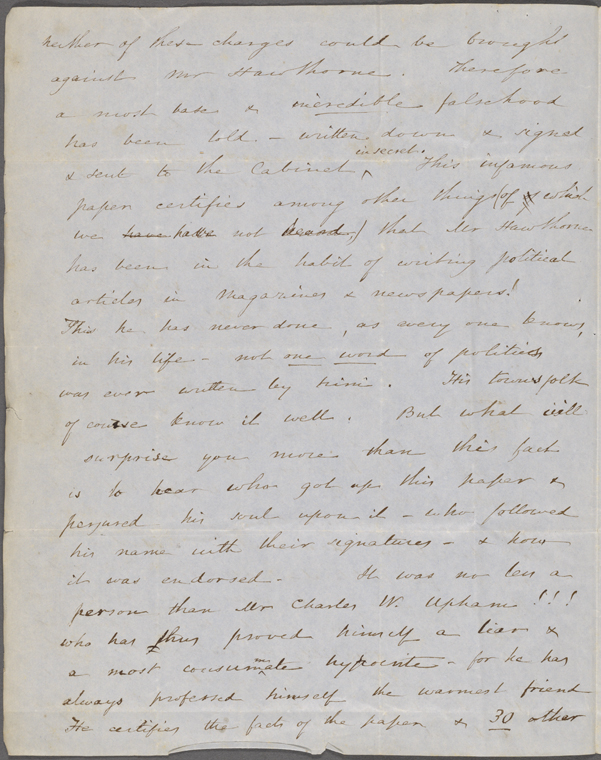 neither of these charges could be brought
against Mr Hawthorne. Therefore
a most base & incredible falsehood
has been told - written down & signed
& sent to the Cabinet in secret. This infamous
paper certifies among other things (of which
we have not heard,) that Mr Hawthorne
has been in the habit of writing political
articles in magazines & newspapers!
This he has never done, as every one knows,
in his life - not one word of politics
was ever written by him. His townsfolk
of course know it well. But what will
surprise you more than this fact
is to hear who got up this paper &
perjured his soul upon it - who followed
his name with their signatures - & how
it was endorsed - It was no less a
person than Mr Charles W. Upham!!!
who has thus proved himself a liar &
a most consummate hypocrite - for he has
always professed himself the warmest friend
He certifies the facts of the paper & 30 other